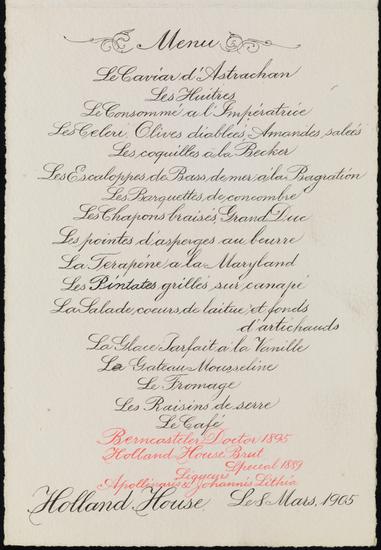 Menu
Le Caviar d'Astrachan
Les Huitres
Le Consommé a l'Impératrice
Les Celeri, Olives diablées, Amandes, salées
Les, coquilles à la Becker
Les Escaloppes, de Bass, de mer, à la Bagration
Les Barquettes, de concombre
Les Chapons braisés, Grand Duc
Les pointes d'asperges au beurre
La Terapéne, a la Maryland
Les Pintates, grillés, sur canapé
La Salade, coeurs, de laitue, et fonds
d'artichauds
La Glace Parfait a la Vanille
Le Gateau Mousseline
Le Fromage
Les Raisins de serre
Le Café
Berncasteler Doctor 1895
Holland House Brut
Special 1889
Liqueurs
Apollinaris & Johannis Lithia
Holland House, Le 8 Mars, 1905